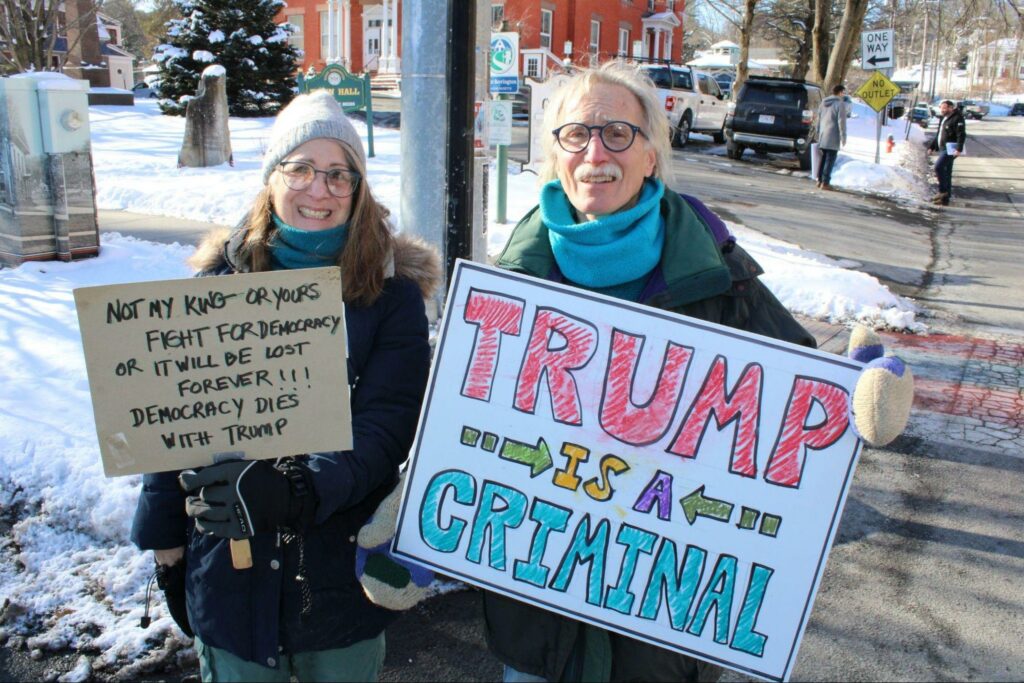 NOT MY KING OR YOURS
FIGHT FOR DEMOCRACY
OR IT WILL BE LOST
FOREVER!!!
DEMOCRACY DIES
WITH TRUMP
TRUMP
IS A
CRIMINAL
ONE WAY
NO
OUTLET
HALL